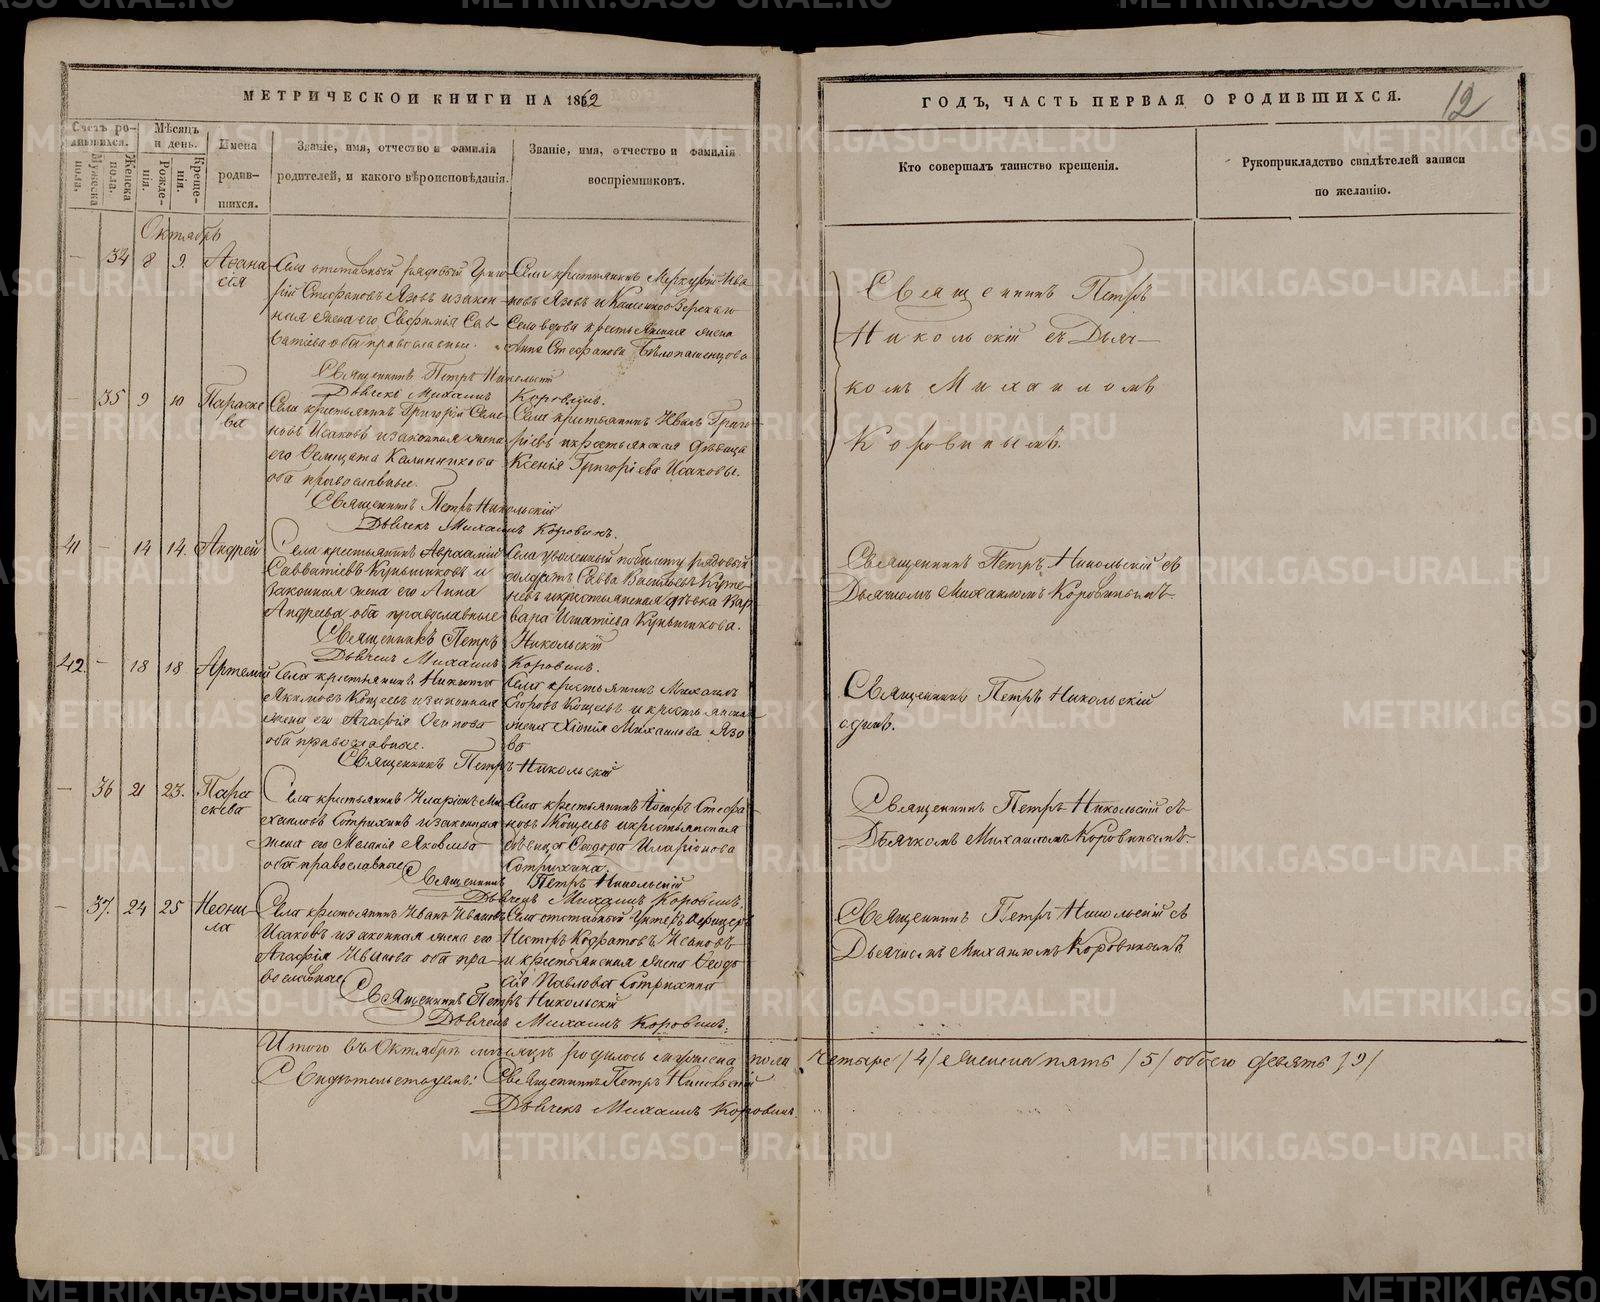 МЕТРИЧЕСКОЙ КНИГИ НА 1862
ГОДЪ, ЧАСТЬ ПЕРВАЯ О РОДИВШИХСЯ.
12
Счетъ родившихся.
Мужеска пола.
Женска пола.
Мѣсяцъ и день.
Рожденія.
Крещенія.
Имена родившихся.
Званіе, имя, отчество и фамилія
родителей, и какого вѣроисповѣданія.
Званіе, имя, отчество и фамилія
воспріемниковъ.
Кто совершалъ таинство крещенія.
Рукоприкладство свидѣтелей записи
по желанію.
Октябрь
— 34 8 9. Аѳанасія
Села отставный рядовый Григо-
рій Стефановъ Язовъ и закон-
ная жена его Евфимія Сав-
ватіева оба православные.
Села крестьянинъ Меркурій Ива-
новъ Язовъ и
Села вдова крестьянская жена
Анна Стефанова Бѣлопашенцова
Священникъ Петръ Никольскій
Дьячекъ Михаилъ Коровинъ.
Священникъ Петръ
Никольскій съ Дьяч-
комъ Михаиломъ
Коровинымъ.
— 35 9 10 Параскева
Села крестьянинъ Григорій Семе-
новъ Исаковъ и законная жена
его Калинникова
оба православные.
Села крестьянинъ Иванъ Григо-
рьевъ и крестьянская дѣвица
Ксенія Григоріева Исаковы.
Священникъ Петръ Никольскій
Дьячекъ Михаилъ Коровинъ.
41 — 14 14. Андрей
Села крестьянинъ Авраамій
Савватіевъ Куньщиковъ и
законная жена его Анна
Андреева оба православные
Села уволенный по билету рядовый
солдатъ Савва Васильевъ
и крестьянская дѣвка Вар-
вара Игнатіева Куньщикова.
Священникъ Петръ Никольскій
Дьячекъ Михаилъ Коровинъ.
Священникъ Петръ Никольскій съ
Дьячкомъ Михаиломъ Коровинымъ
42. — 18 18 Артемій
Села крестьянинъ Никита
Якимовъ Кощеевъ и законная
жена его Агафія Осипова
оба православные.
Села крестьянинъ Михаилъ
Егоровъ Кощеевъ и крестьянска
жена Хіонія Михаилова Язо
ва
Священникъ Петръ Никольскій
Священникъ Петръ Никольскій
одинъ.
— 36 21 23. Параскева
Села крестьянинъ Иларіонъ Ми-
хаиловъ Сотрихинъ и законная
жена его Меланія Яковлева
оба православные
Села крестьянинъ Стефа-
новъ Кощеевъ и крестьянская
дѣвица Ѳеодора Иларіонова
Сотрихина.
Священникъ Петръ Никольскій
Дьячекъ Михаилъ Коровинъ.
Священникъ Петръ Никольскій съ
Дьячкомъ Михаиломъ Коровинымъ.
— 37. 24 25 Неонила
Села крестьянинъ Иванъ Ивановъ
Исаковъ и законная жена его
Агафія Иванова оба пра-
вославные
Села отставный Унтеръ Офицеръ
Несторъ Кодратовъ Исаковъ
и крестьянская жена Ѳеодо-
сія Павлова Сотрихина
Священникъ Петръ Никольскій
Дьячекъ Михаилъ Коровинъ.
Священникъ Петръ Никольскій съ
Дьячкомъ Михаиломъ Коровинымъ
Итого въ Октябрѣ мѣсяцѣ родилось мужеска пола четыре /4/ женска пять /5/ обоего девять /9/
Свидѣтельствуемъ: Священникъ Петръ Никольскій
Дьячекъ Михаилъ Коровинъ
METRIKI.GASO-URAL.RU